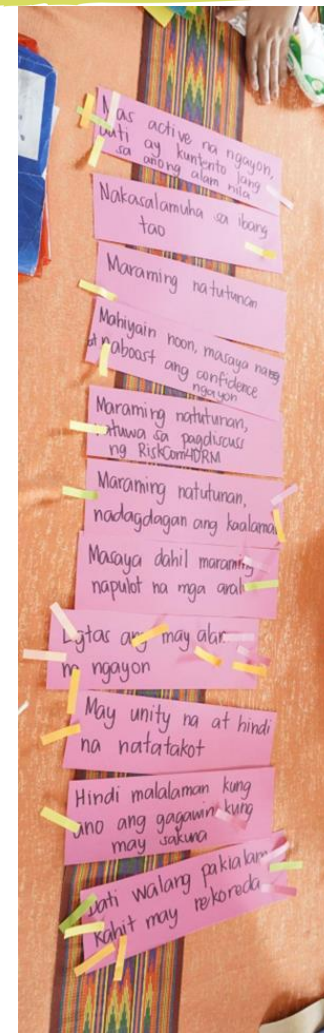 Mas active na ngayon,
dati ay kuntento lang
sa anong alam nila
Nakasalamuha sa ibang
tao
Maraming natutunan
Mahiyain noon, masaya na
at naboost ang confidence
ngayon
Maraming natutunan,
natuwa sa pagdiscuss
ng RiskCom4DRM
Maraming natutunan,
nadagdagan ang kaalaman
Masaya dahil maraming
napulot na mga aral
Ligtas ang may alam
na ngayon
May unity na at hindi
na natatakot
Hindi malalaman kung
ano ang gagawin kung
may sakuna
Dati walang pakialam
kahit may rekoreda